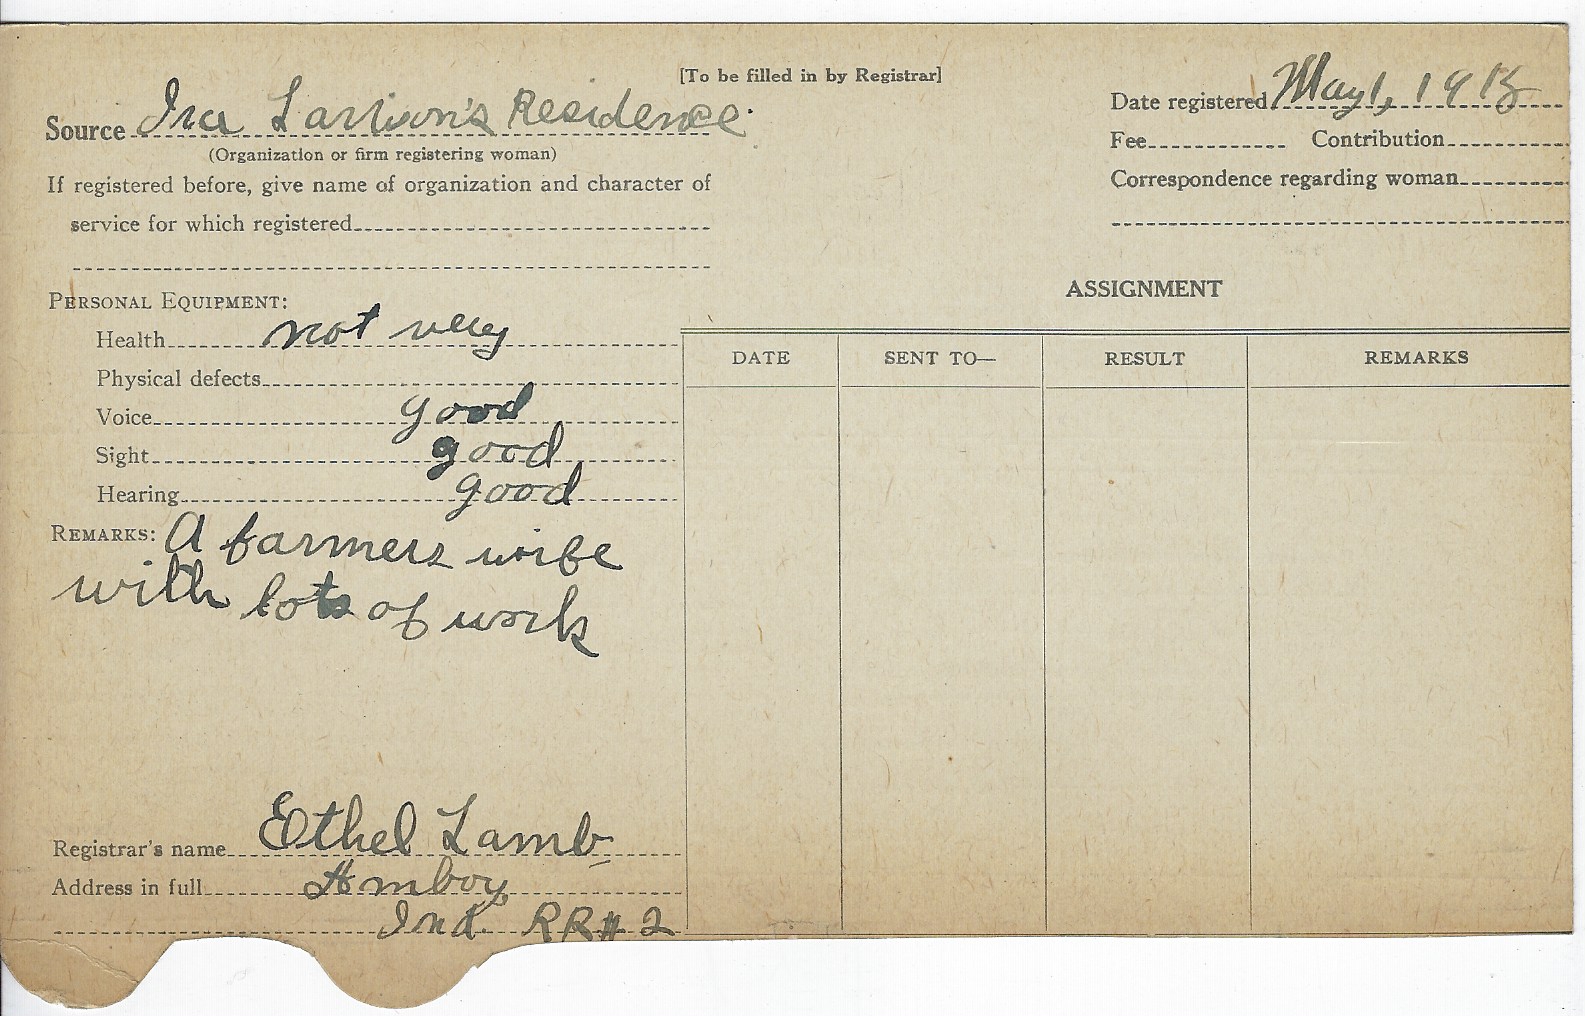 [To be filled in by Registrar]
Source Ira Larison's Residence.
(Organization or firm registering woman)
If registered before, give name of organization and character of
service for which registered
Date registered May 1, 1918
Fee Contribution
Correspondence regarding woman
PERSONAL EQUIPMENT:
Health not very
Physical defects
Voice good
Sight good
Hearing good
REMARKS: A farmers wife
with lots of work
Registrar's name Ethel Lamb
Address in full Amboy
Ind. RR # 2
ASSIGNMENT
DATE SENT TO— RESULT REMARKS